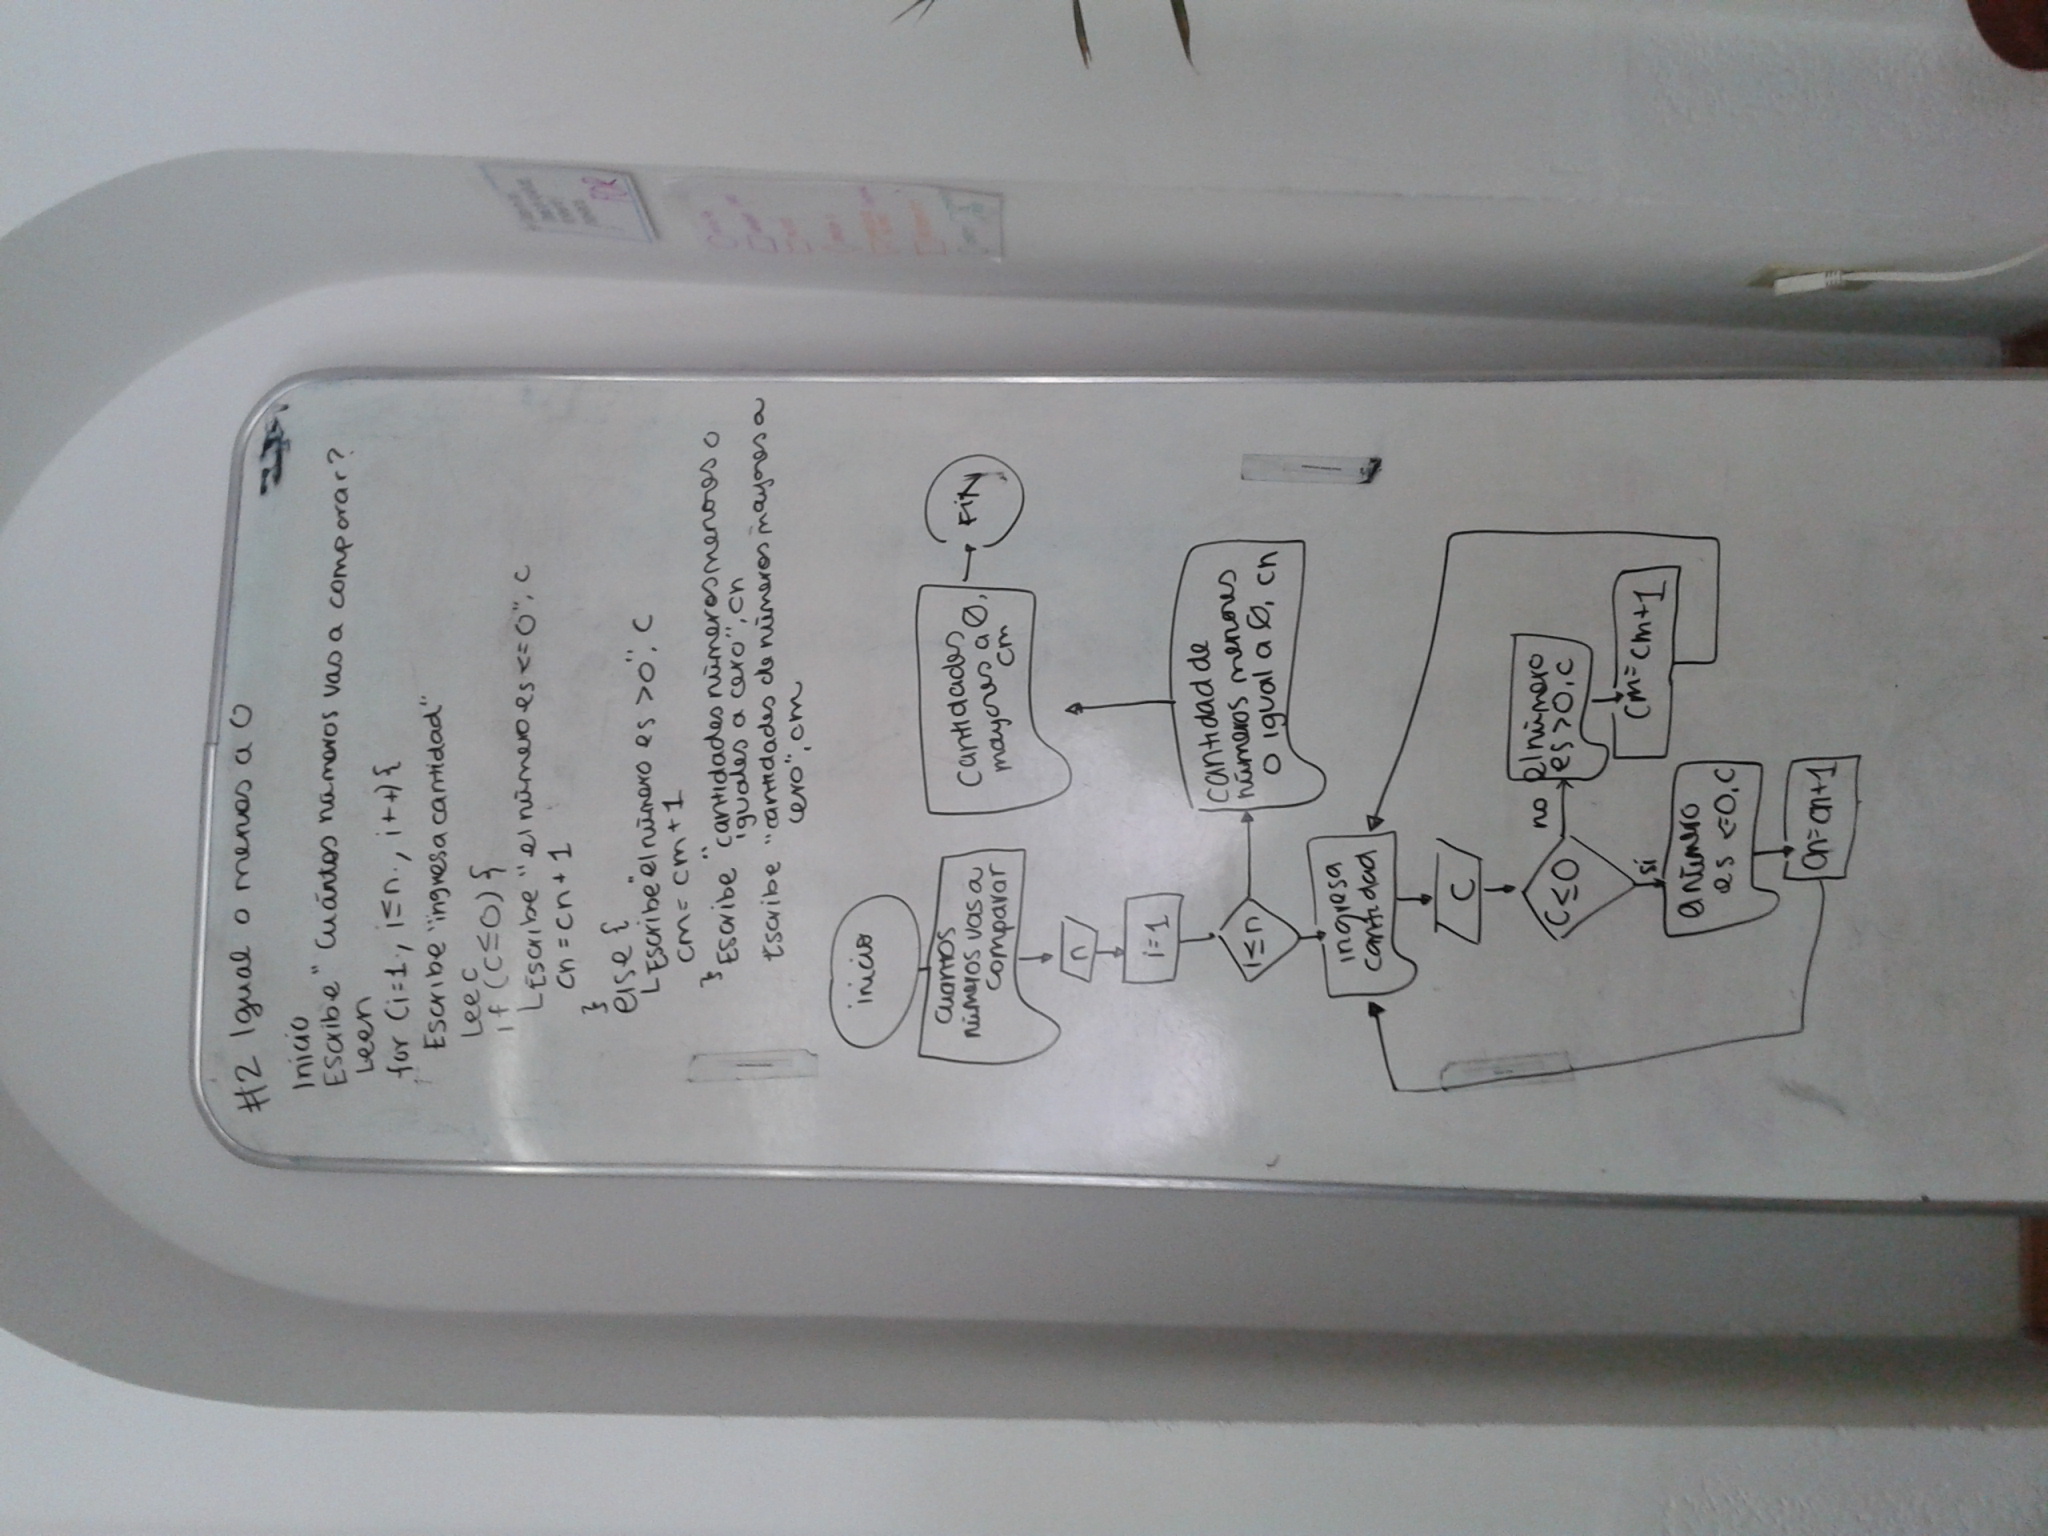 #2 Igual o menos a 0
Inicio
Escribe " Cuántos números vas a comparar?
Lee n
for (i=1, i≤n, i++){
Escribe "ingresa cantidad"
Lee c
if (C≤0) {
Escribe "el número es <= 0", c
cn = cn + 1
}
else {
Escribe "el número es >0", c
cm = cm + 1
}
Escribe "cantidades números menores o
iguales a cero", cn
Escribe "cantidades de números mayores a
cero", cm
inicio
cuantos
números vas a
comparar
n
i=1
i≤n
cantidad de
números menores
o igual a 0, cn
Cantidades
mayores a 0,
cm
FIN
ingresa
cantidad
C
C≤0
no
el número
es >0, c
cm = cm+1
si
el número
es <=0, c
cn=cn+1
FOR